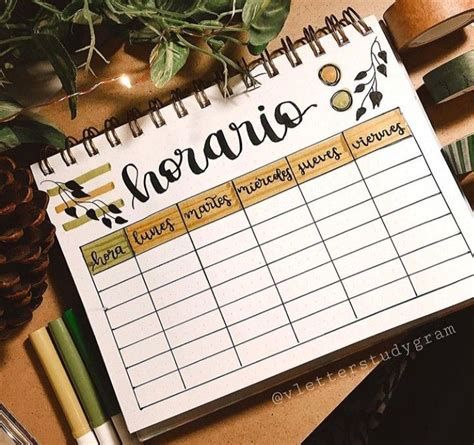 horario
hora lunes martes miércoles jueves viernes
@vletterstudygram